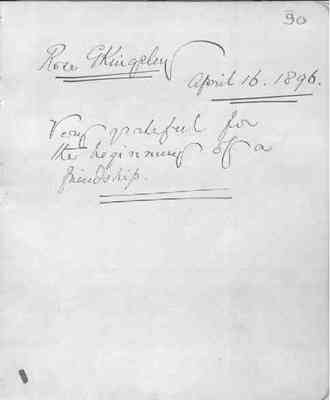 90
Rose G Kingsley
April 16. 1896.
Very grateful for
the beginning of a
friendship.